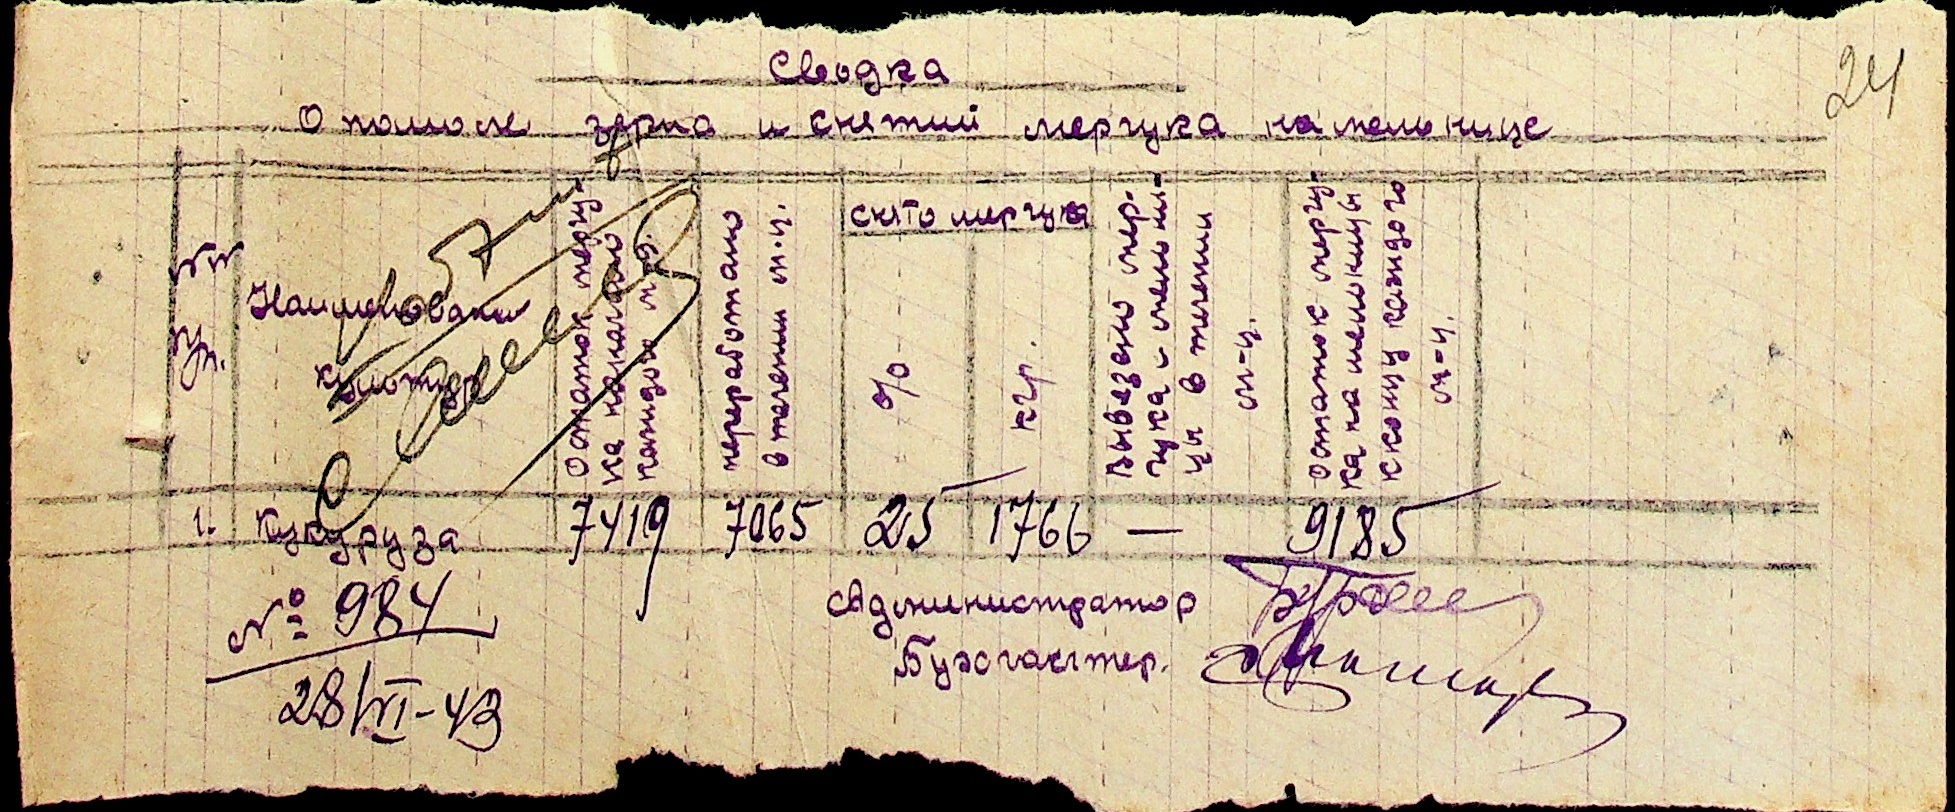 Сводка
24
О помоле зерна и снятий мерчука на мельнице
NN
пп.
Наименовани
культур
Остаток мерчу-
ка на начало
каждого м-ца.
переработано
в течении м-ц.
снято мерчука
%
кгр.
Вывезено мер-
чука с мельни-
цы в течении
м-ц.
Остаток мерчу-
ка на мельницы
к концу каждого
м-ц.
1. Кукуруза 7419 7065 25 1766 — 9185
№ 984
28/VI-43
Администратор
Бухгалтер.